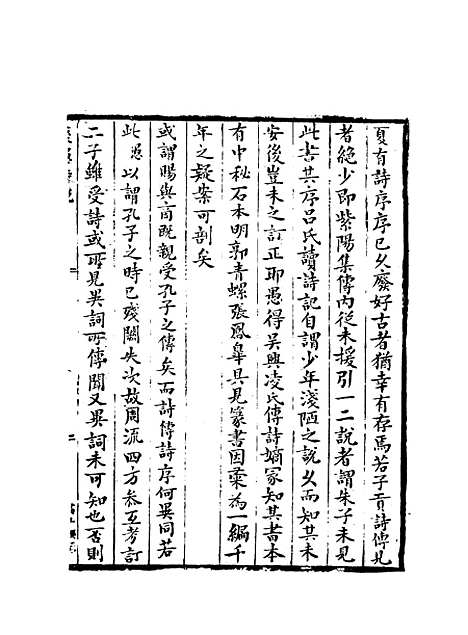 夏有詩序序已久廢好古者猶幸有存焉若子貢詩傳見
者絶少即紫陽集傳内從未援引一二說者謂朱子未見
此書其序吕氏讀詩記自謂少年淺陋之說久而知其未
安後豈未之訂正耶愚得吳興凌氏傳詩嫡冡知其書本
有中秘石本明郭青螺張鳳臯具見篆書因彚為一編千
年之疑案可剖矣
或謂賜與商既親受孔子之傳矣而詩傳詩序何異同若
此愚以謂孔子之時已殘闕失次故周流四方叅互考訂
二子雖受詩或所見異詞所傳聞又異詞未可知也否則